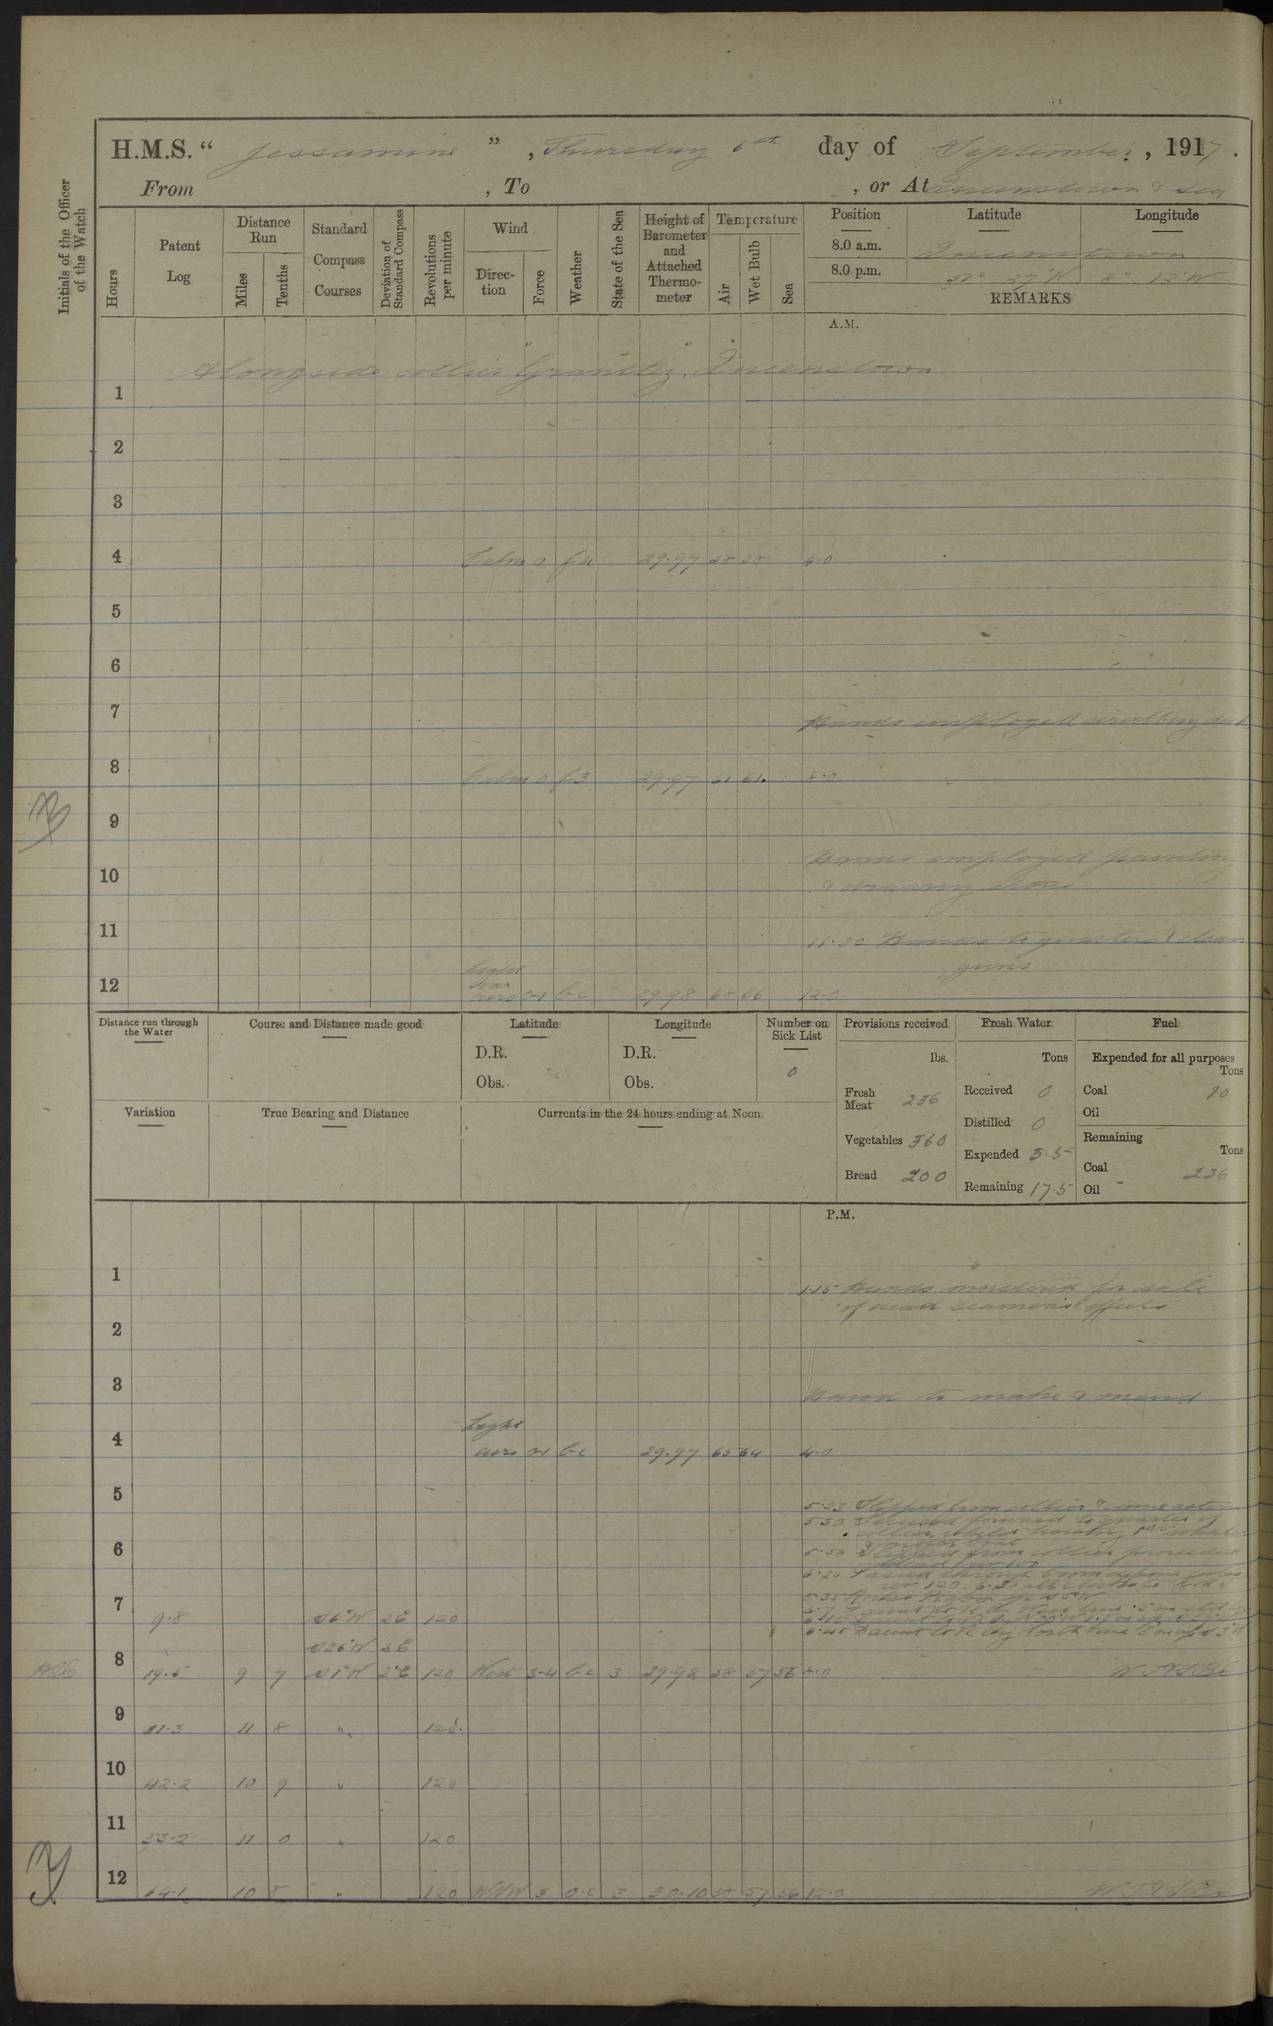 H.M.S. “ Jessamine ” , Thursday 6th day of September , 1917 .
From , To , or At Queenstown & Sea
Initials of the Officer of the Watch
Hours
Patent Log
Distance Run
Miles
Tenths
Standard Compass Courses
Deviation of Standard Compass
Revolutions per minute
Wind
Direction
Force
Weather
State of the Sea
Height of Barometer and Attached Thermometer
Temperature
Air
Wet Bulb
Sea
Position Latitude Longitude
8.0 a.m. Queenstown
8.0 p.m. 51° 27'N 8° 12'W
REMARKS
A.M.
Alongside collier "Grantley", Queenstown
1
2
3
4 Calm 0 29.97 58 58 4.0
5
6
7 Hands employed scrubbing deck
8 Calm 0 f 3 29.97 61 61 8.0
9
10 Hands employed painting
&
11 11.30 Hands to quarters & clean
guns
Light
airs
12 0-1 b.c 29.98 68 66 12.0
Distance run through the Water
Course and Distance made good
Latitude
D.R.
Obs.
Longitude
D.R.
Obs.
Number on Sick List
0
Provisions received
lbs.
Fresh Meat 236
Vegetables 360
Bread 200
Fresh Water
Tons
Received 0
Distilled 0
Expended 3.5
Remaining 17.5
Fuel
Expended for all purposes
Tons
Coal 10
Oil
Remaining
Tons
Coal 236
Oil -
Variation
True Bearing and Distance
Currents in the 24 hours ending at Noon
P.M.
1 1.15 Hands mustered for sale
of dead seamen's effects
2
3 Hands to make & mend
Light
4 airs 0-1 b.c 29.97 65 64 4.0
5
5.23 Slipped from collier & came astern
5.30 Secured forward to quarter of
collier whilst hoisting whaler
& motor boat
6 5.50 Slipped from collier proceeded
6.20 Passed through boom defence
rev 120.
7 9.8 S6°W 2E 120
6.45 Daunt
S26°W 2E
8 19.5 9 7 S1°W 2°E 120 West 3-4 b.c 3 29.92 58 57 56 8.0
9 31.3 11 8 " 120
10 42.2 10 9 " 120
11 53.2 11 0 " 120
12 64.1 10 8 " 120 WNW 3 o.c 3 30.10 58 57 56 12.0